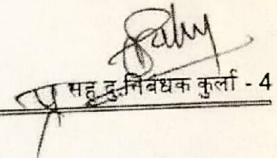 सह दु.निबंधक कुर्ला - 4